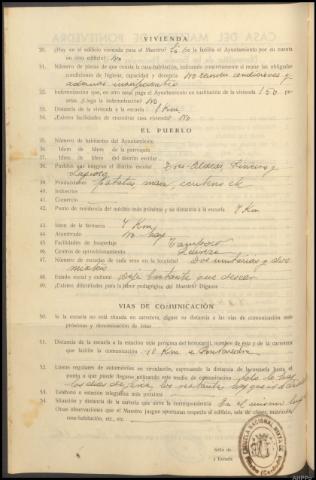 VIVIENDA
30. ¿Hay en el edificio vivienda para el Maestro? Si ¿o la facilita el Ayuntamiento por su cuenta
en otro edificio? No
31. Número de piezas de que consta la casa-habitación, indicando concretamente si reune las obligadas
condiciones de higiene, capacidad y decencia No reune condiciones y
ademas insuficiente
32. Indemnización que, en otro caso, paga el Ayuntamiento en sustitución de la vivienda 150 pe-
setas. ¿Llega la indemnización? No
33. Distancia de la vivienda a la escuela 1 Km
34. ¿Existen facilidades de encontrar casa-vivienda? No
EL PUEBLO
35. Número de habitantes del Ayuntamiento
36. Idem de Idem de la parroquia
37. Idem de Idem del distrito escolar
38. Pueblos que integran el distrito escolar
39. Producciones Patatas, maiz, centeno etc
40. Industrias
41. Comercio
42. Punto de residencia del médico más próximo y su distancia a la escuela 8 Km
43. Idem de la farmacia 4 Km
44. Alumbrado No hay
45. Facilidades de hospedaje Tampoco
46. Centros de aprovisionamiento
47. Número de escuelas de cada sexo en la localidad Dos unitarias y dos
mixtas
48. Estado social y cultural Deja bastante que desear
49. Existen dificultades para la labor pedagógica del Maestro Díganse
VIAS DE COMUNICACIÓN
50. Si la escuela no está situada en carretera, dígase su distancia a las vías de comunicación más
próximas y denominación de éstas
51. Distancia de la escuela a la estación más próxima del ferrocarril, nombre de ésta y de la carretera
que facilite la comunicación 12 Km a Pontevedra
52. Líneas regulares de automóviles en circulación, expresando la distancia de la escuela hasta el
punto a que puede llegarse utilizando este medio de comunicación solo la hay
los dias de feria, los restantes
53. Teléfono o estación telegráfica más próximos
54. Situación y distancia de la cartería que sirve la correspondencia En el mismo lugar
Otras observaciones que el Maestro juzgue oportunas respecto al edificio, sala de clases, mobiliario,
casa-habitación, etc., etc.
Sello de
la Escuela